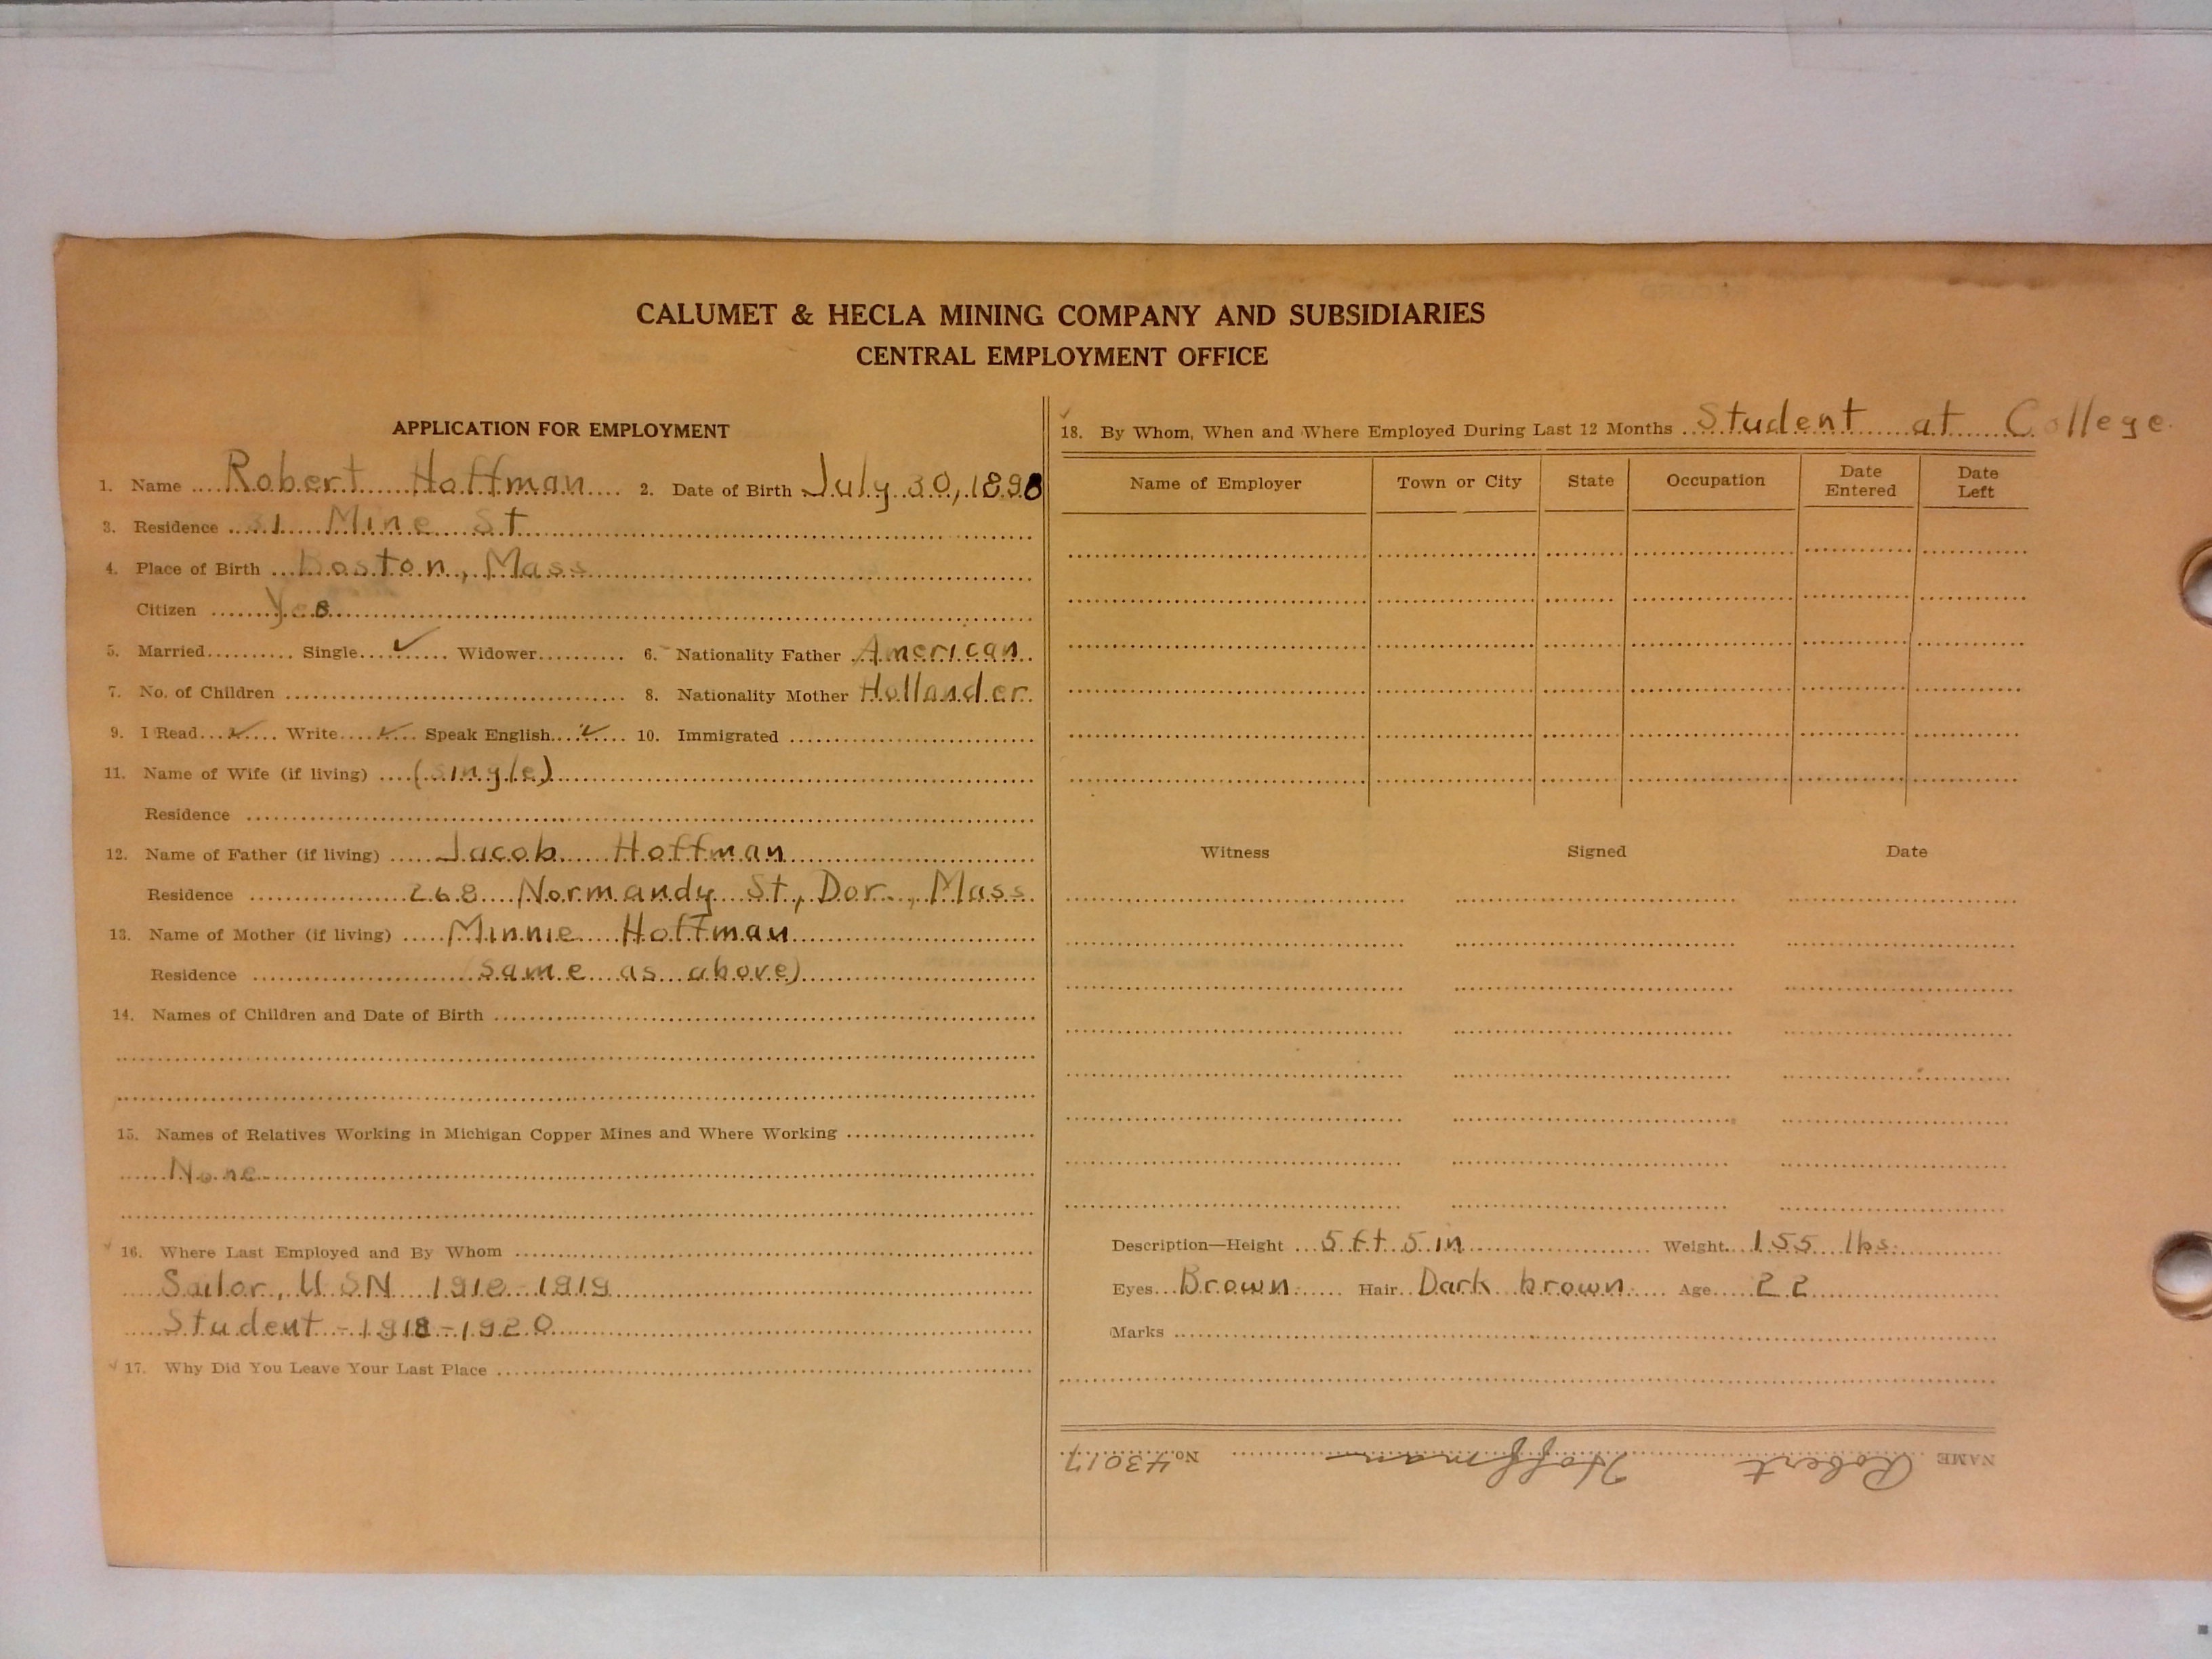 CALUMET & HECLA MINING COMPANY AND SUBSIDIARIES
CENTRAL EMPLOYMENT OFFICE
APPLICATION FOR EMPLOYMENT
1. Name Robert Hoffman 2. Date of Birth July 30, 1898
3. Residence 31 Mine St
4. Place of Birth Boston, Mass
Citizen Yes
5. Married Single ✓ Widower 6. Nationality Father American
7. No. of Children 8. Nationality Mother Hollander
9. I Read ✓ Write ✓ Speak English ✓ 10. Immigrated
11. Name of Wife (if living) (single)
Residence
12. Name of Father (if living) Jacob Hoffman
Residence 268 Normandy St, Dor., Mass
13. Name of Mother (if living) Minnie Hoffman
Residence (same as above)
14. Names of Children and Date of Birth
15. Names of Relatives Working in Michigan Copper Mines and Where Working
None
16. Where Last Employed and By Whom
Sailor, USN 1918-1919
Student - 1918-1920
17. Why Did You Leave Your Last Place
18. By Whom, When and Where Employed During Last 12 Months Student at College.
Name of Employer Town or City State Occupation Date Entered Date Left
Witness Signed Date
Description—Height 5 ft 5 in Weight 155 lbs.
Eyes Brown Hair Dark brown Age 22
Marks
NAME Robert Hoffman No. 43017